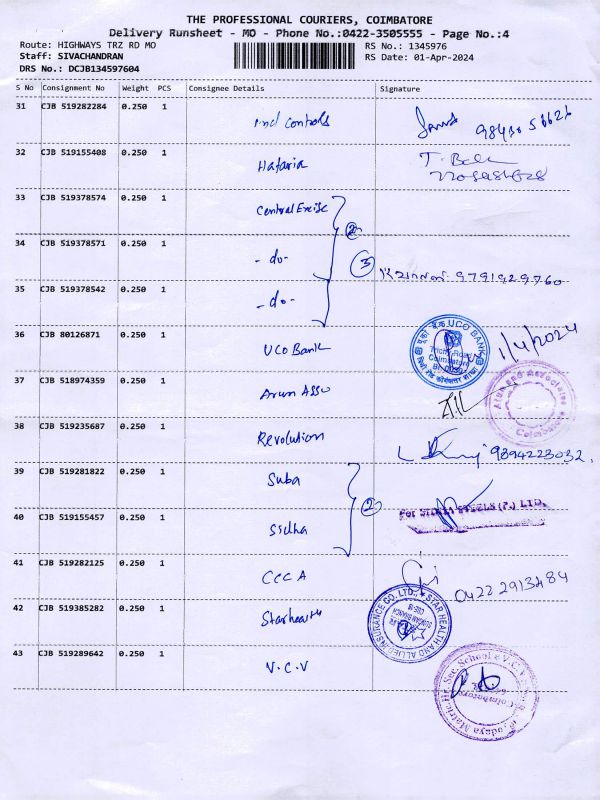 THE PROFESSIONAL COURIERS, COIMBATORE
Delivery Runsheet - MO - Phone No.:0422-3505555 - Page No.:4
Route: HIGHWAYS TRZ RD MO
RS No.: 1345976
Staff: SIVACHANDRAN
RS Date: 01-Apr-2024
DRS No.: DCJB134597604
S No Consignment No Weight PCS Consignee Details Signature
31 CJB 519282284 0.250 1 Ind Controls
32 CJB 519155408 0.250 1 Hataria
33 CJB 519378574 0.250 1 Central Excise
34 CJB 519378571 0.250 1 -do-
3
9791929760
35 CJB 519378542 0.250 1 -do-
36 CJB 80126871 0.250 1 UCO Bank UCO BANK
Trichy Road
Coimbatore
1/4/2024
37 CJB 518974359 0.250 1 Arun Asso Arun and Associates
Coimbatore
38 CJB 519235687 0.250 1 Revolution 9894223032.
39 CJB 519281822 0.250 1 Suba
2
40 CJB 519155457 0.250 1
41 CJB 519282125 0.250 1 CCCA 0422 2913484
42 CJB 519385282 0.250 1 Starhealth STAR HEALTH AND ALLIED INSURANCE CO. LTD.
43 CJB 519289642 0.250 1 V.C.V Matric. Hr. Sec. School
Coimbatore